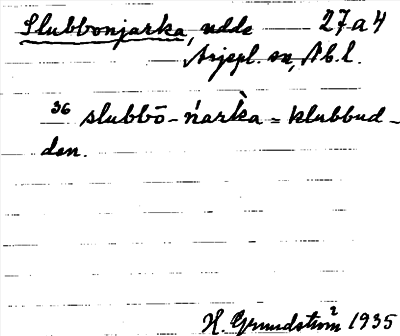 Slubbonjarka, udde 27a4
Arjepl. sn, Nb.l.
36 slubbō-ńar̀ka = klubbud-
den.
H. Grundström 1935